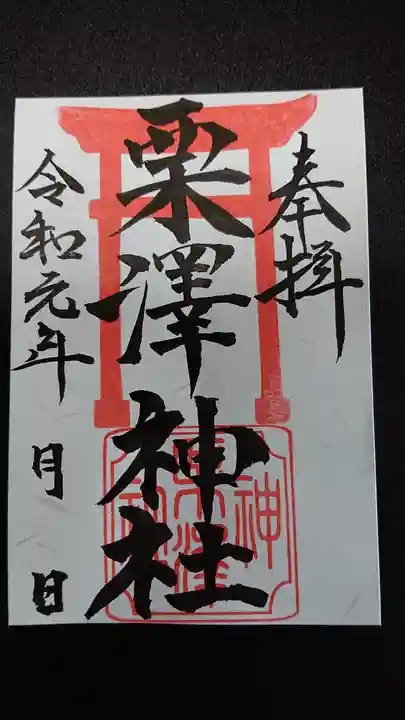 奉拝
栗澤神社
令和元年 月 日